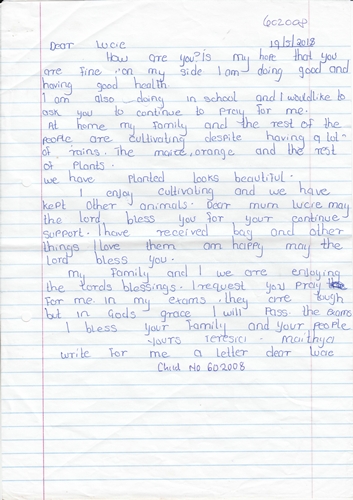 602008
Dear Lucie 19/5/2018
How are you? Is my hope that you
are fine. on my side I am doing good and
having good health.
I am also doing in school and I would like to
ask you to continue to pray for me.
At home my family and the rest of the
people are cultivating despite having a lot
of rains. The maize, orange and the rest
of plants.
we have planted looks beautiful.
I enjoy cultivating and we have
kept other animals. Dear mum Lucie may
the lord bless you for your continue
support. I have received bag and other
things I love them am happy may the
Lord bless you.
my family and I we are enjoying
the Lords blessings. I request you pray
for me in my exams. they are tough
but in Gods grace I will pass the exams
I bless your family and your people
yours Teresia. Maithya
write for me a letter dear Lucie
Child No 602008